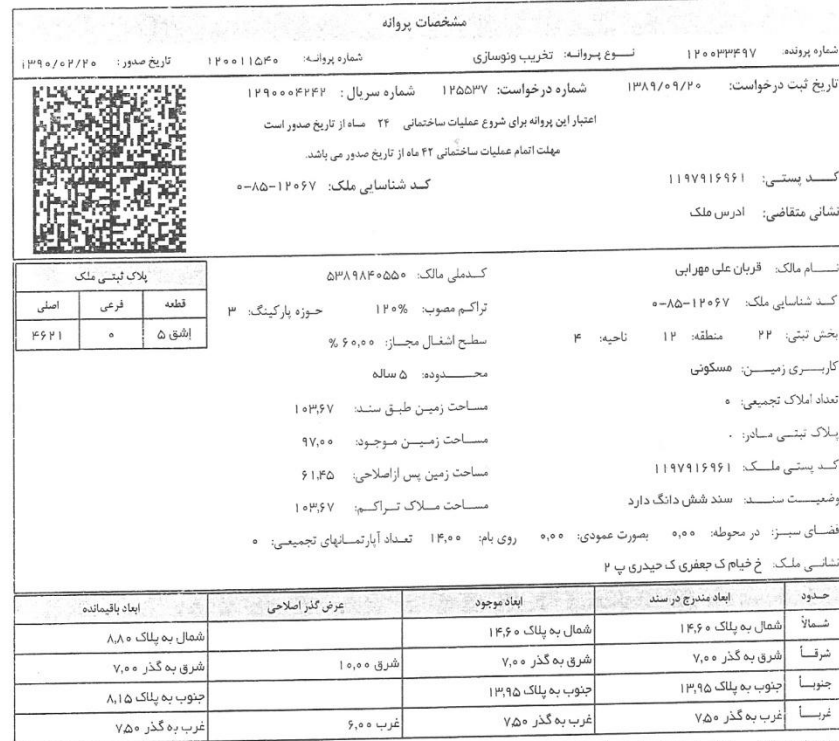 مشخصات پروانه
شماره پرونده: ۱۲۰۰۳۳۴۹۷ نـــوع پروانـه: تخریب ونوسازی شماره پروانـه: ۱۲۰۰۱۱۵۴۰ تاریخ صدور: ۱۳۹۰/۰۲/۲۰
تاریخ ثبت درخواست: ۱۳۸۹/۰۹/۲۰ شماره درخواست: ۱۲۵۵۳۷ شماره سریال: ۱۲۹۰۰۰۴۲۴۲
اعتبار این پروانه برای شروع عملیات ساختمانی ۲۴ مـاه از تاریخ صدور است
مهلت اتمام عملیات ساختمانی ۴۲ ماه از تاریخ صدور می باشد.
کـــد پستـــی: ۱۱۹۷۹۱۶۹۶۱ کـد شناسایی ملک: ۱۲۰۶۷-۸۵-۰
نشانی متقاضی: ادرس ملک
نـــام مالک: قربان علی مهرابی کــدملی مالک: ۵۳۸۹۸۴۰۵۵۰
پلاک ثبتـی ملک
قطعه فرعی اصلی
إشق ۵ ۰ ۴۶۲۱
کـد شناسایی ملک: ۱۲۰۶۷-۸۵-۰ تراکـم مصوب: ۱۲۰% حـوزه پارکینگ: ۳
بخش ثبتی: ۲۲ منطقه: ۱۲ ناحیه: ۴ سطـح اشغـال مجـاز: ۶۰,۰۰ %
کاربـــری زمیــــن: مسکونی محـــــدوده: ۵ ساله
تعداد املاک تجمیعی: ۰ مسـاحت زمیـن طبـق سنـد: ۱۰۳,۶۷
پـلاک ثبتــی مــادر: ۰ مسـاحت زمیــن مـوجـود: ۹۷,۰۰
کـد پستـی ملــک: ۱۱۹۷۹۱۶۹۶۱ مساحت زمین پس ازاصلاحی: ۶۱,۴۵
وضعیـــت سنـــد: سند شش دانگ دارد مساحت مــلاک تــراکــم: ۱۰۳,۶۷
فضــای سبــز: در محوطه: ۰,۰۰ بصورت عمودی: ۰,۰۰ روی بام: ۱۴,۰۰ تعـداد آپارتمـانهای تجمیعـی: ۰
نشانــی ملـک: خ خیام ک جعفری ک حیدری پ ۲
حـدود ابعاد مندرج درسند ابعاد موجود عرض گذر اصلاحی ابعاد باقیمانده
شمـالاً شمال به پلاک ۱۴,۶۰ شمال به پلاک ۱۴,۶۰ شمال به پلاک ۸,۸۰
شرقــاً شرق به گذر ۷,۰۰ شرق به گذر ۷,۰۰ شرق ۱۰,۰۰ شرق به گذر ۷,۰۰
جنوبــاً جنوب به پلاک ۱۳,۹۵ جنوب به پلاک ۱۳,۹۵ جنوب به پلاک ۸,۱۵
غربــاً غرب به گذر ۷,۵۰ غرب به گذر ۷,۵۰ غرب ۶,۰۰ غرب به گذر ۷,۵۰